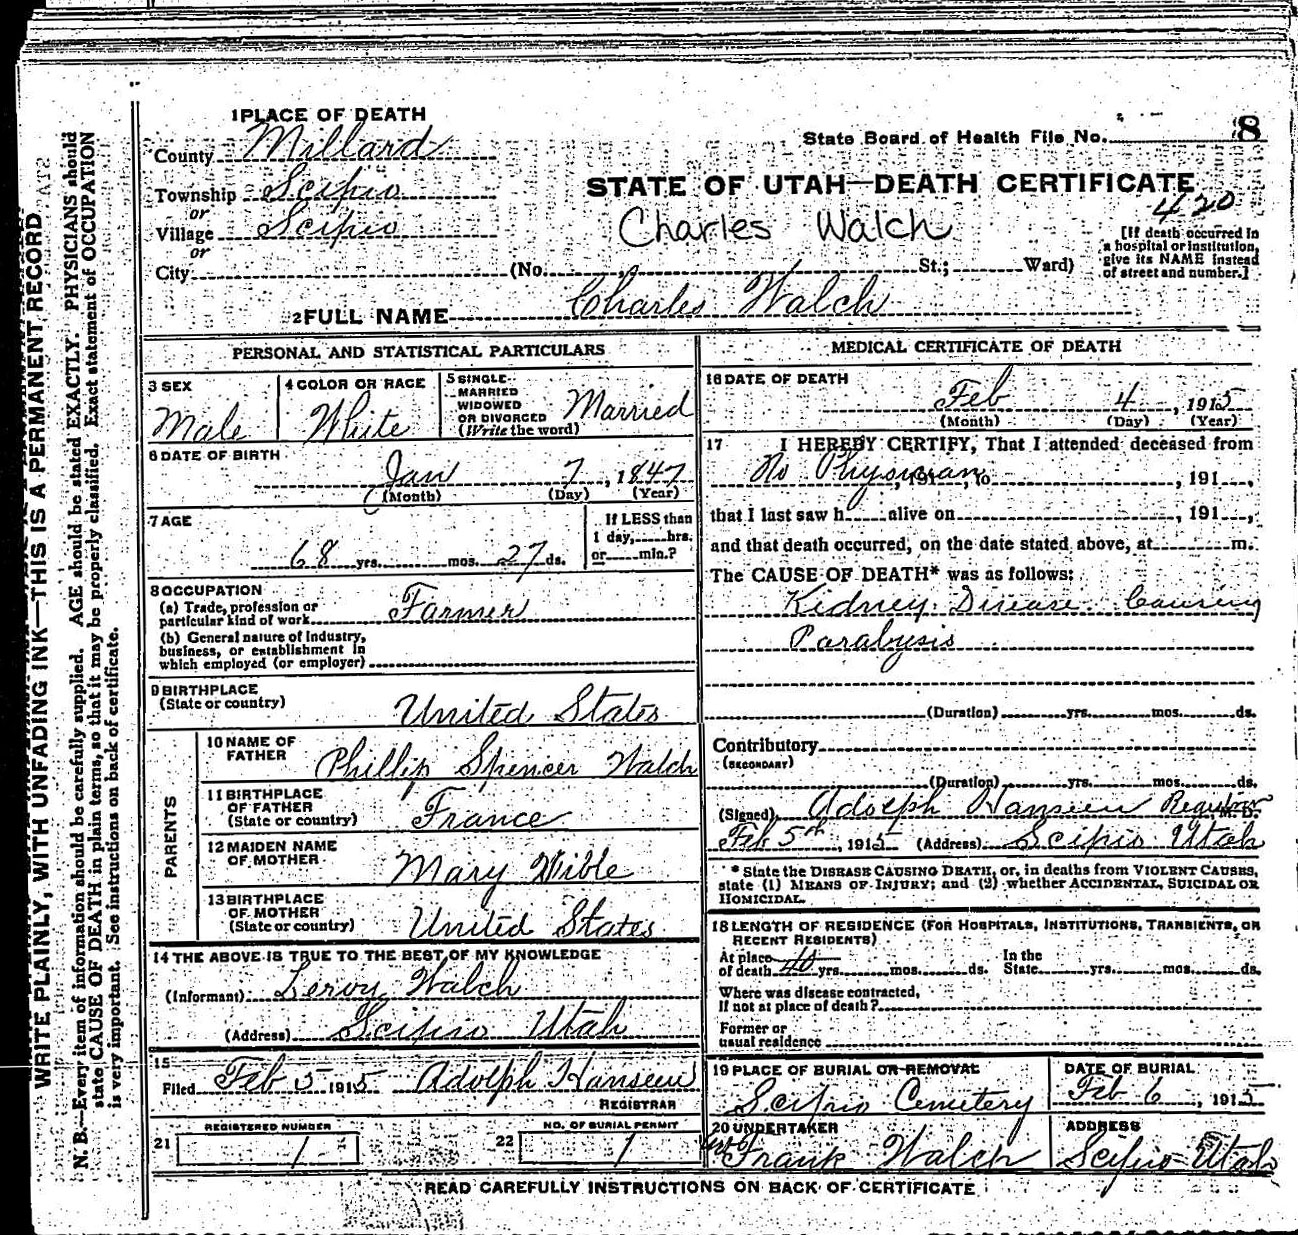 1 PLACE OF DEATH
County Millard
State Board of Health File No. 8
Township Scipio
or
Village Scipio
or
City (No. St.; Ward)
STATE OF UTAH—DEATH CERTIFICATE
420
Charles Walch
[If death occurred in
a hospital or institution,
give its NAME instead
of street and number.]
2 FULL NAME Charles Walch
PERSONAL AND STATISTICAL PARTICULARS
3 SEX
Male
4 COLOR OR RACE
White
5 SINGLE
MARRIED
WIDOWED
OR DIVORCED
(Write the word)
Married
6 DATE OF BIRTH
Jan 7, 1847
(Month) (Day) (Year)
7 AGE
68 yrs. mos. 27 ds.
If LESS than
1 day, hrs.
or min.?
8 OCCUPATION
(a) Trade, profession or
particular kind of work Farmer
(b) General nature of Industry,
business, or establishment in
which employed (or employer)
9 BIRTHPLACE
(State or country)
United States
PARENTS
10 NAME OF
FATHER
Phillip Spencer Walch
11 BIRTHPLACE
OF FATHER
(State or country)
France
12 MAIDEN NAME
OF MOTHER
Mary Wible
13 BIRTHPLACE
OF MOTHER
(State or country)
United States
14 THE ABOVE IS TRUE TO THE BEST OF MY KNOWLEDGE
(Informant) Leroy Walch
(Address) Scipio Utah
15
Filed Feb 5 1915 Adolph Hanseen
REGISTRAR
21 REGISTERED NUMBER
1
22 NO. OF BURIAL PERMIT
1
MEDICAL CERTIFICATE OF DEATH
16 DATE OF DEATH
Feb 4, 1915
(Month) (Day) (Year)
17 I HEREBY CERTIFY, That I attended deceased from
No Physician, 191 , to , 191 ,
that I last saw h alive on , 191 ,
and that death occurred, on the date stated above, at m.
The CAUSE OF DEATH* was as follows:
Kidney Disease Causing
Paralysis
(Duration) yrs. mos. ds.
Contributory
(SECONDARY)
(Duration) yrs. mos. ds.
(Signed) Adolph Hanseen Registrar M. D.
Feb 5th, 1915 (Address) Scipio Utah
* State the DISEASE CAUSING DEATH, or, in deaths from VIOLENT CAUSES,
state (1) MEANS OF INJURY; and (2) whether ACCIDENTAL, SUICIDAL OR
HOMICIDAL.
18 LENGTH OF RESIDENCE (FOR HOSPITALS, INSTITUTIONS, TRANSIENTS, OR
RECENT RESIDENTS)
At place
of death 40 yrs. mos. ds.
In the
State yrs. mos. ds.
Where was disease contracted,
If not at place of death?
Former or
usual residence
19 PLACE OF BURIAL OR REMOVAL
Scipio Cemetery
DATE OF BURIAL
Feb 6, 1915
20 UNDERTAKER
Frank Walch
ADDRESS
Scipio Utah
READ CAREFULLY INSTRUCTIONS ON BACK OF CERTIFICATE
WRITE PLAINLY, WITH UNFADING INK—THIS IS A PERMANENT RECORD
N. B.—Every item of information should be carefully supplied. AGE should be stated EXACTLY. PHYSICIANS should
state CAUSE OF DEATH in plain terms, so that it may be properly classified. Exact statement of OCCUPATION
is very important. See instructions on back of certificate.